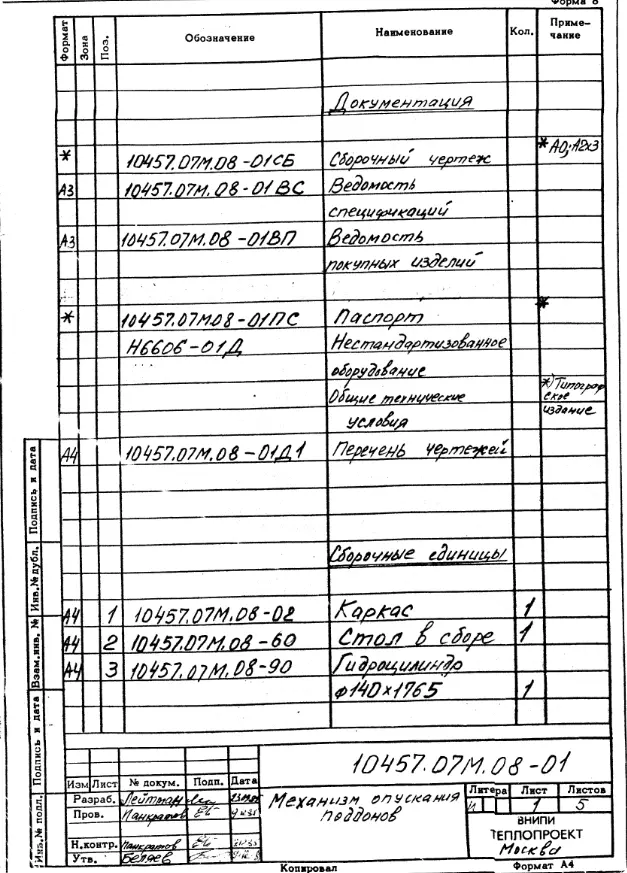 Форма 8
Формат Зона Поз. Обозначение Наименование Кол. Приме-
чание
Документация
* 10457.07М.08-01СБ Сборочный чертеж * А0; А2х3
А3 10457.07М.08-01ВС Ведомость
спецификаций
А3 10457.07М.08-01ВП Ведомость
покупных изделий
* 10457.07М.08-01ПС Паспорт *
Н6606-01Д Нестандартизованное
оборудование
Общие технические *) Типограф
ское
условия издание
А4 10457.07М.08-01Д1 Перечень чертежей
Сборочные единицы
А4 1 10457.07М.08-02 Каркас 1
А4 2 10457.07М.08-60 Стол в сборе 1
А4 3 10457.07М.08-90 Гидроцилиндр
ф140х1765 1
Подпись и дата
Инв.№ дубл.
Взам.инв. №
Подпись и дата
Инв.№ подл.
10457.07М.08-01
Изм Лист № докум. Подп. Дата
Разраб. Лейтман
Пров. Панкратов
Н.контр. Панкратов
Утв. Беляев
Механизм опускания
поддонов
Литера Лист Листов
И 1 5
ВНИПИ
ТЕПЛОПРОЕКТ
Москва
Копировал Формат А4